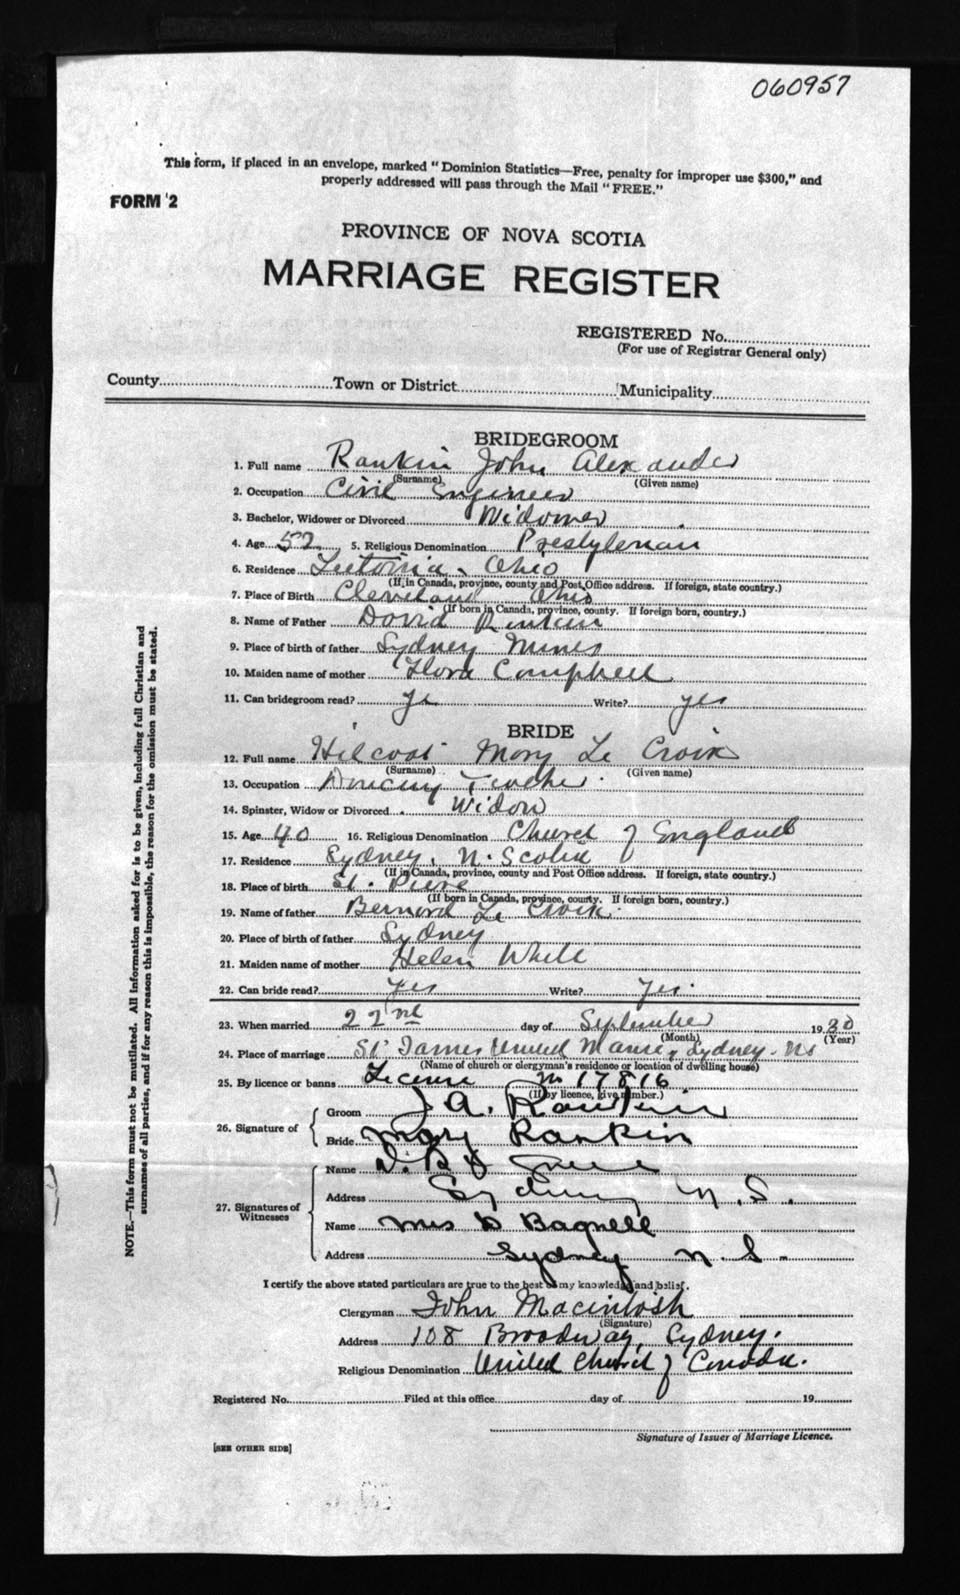 060957
This form, if placed in an envelope, marked "Dominion Statistics—Free, penalty for improper use $300," and
properly addressed will pass through the Mail "FREE."
FORM 2
PROVINCE OF NOVA SCOTIA
MARRIAGE REGISTER
REGISTERED No.
(For use of Registrar General only)
County Town or District Municipality
BRIDEGROOM
1. Full name Rankin John Alexander
(Surname) (Given name)
2. Occupation Civil Engineer
3. Bachelor, Widower or Divorced Widower
4. Age 52 5. Religious Denomination Presbyterian
6. Residence Ohio
(If in Canada, province, county and Post Office address. If foreign, state country.)
7. Place of Birth Cleveland Ohio
(If born in Canada, province, county. If foreign born, country.)
8. Name of Father David Rankin
9. Place of birth of father Sydney Mines
10. Maiden name of mother Flora Campbell
11. Can bridegroom read? Yes Write? yes
BRIDE
12. Full name Hilcoat Mary Le Croix
(Surname) (Given name)
13. Occupation Dancing Teacher
14. Spinster, Widow or Divorced Widow
15. Age 40 16. Religious Denomination Church of England
17. Residence Sydney, N. Scotia
(If in Canada, province, county and Post Office address. If foreign, state country.)
18. Place of birth St. Piere
(If born in Canada, province, county. If foreign born, country.)
19. Name of father Bernard Le Croix
20. Place of birth of father Sydney
21. Maiden name of mother Helen White
22. Can bride read? yes Write? Yes.
23. When married 22nd day of September 1930
(Month) (Year)
24. Place of marriage St James United Manse, Sydney. NS
(Name of church or clergyman's residence or location of dwelling house)
25. By licence or banns License No 17816
(If by licence, give number.)
26. Signature of
Groom J A. Rankin
Bride Mary Rankin
27. Signatures of Witnesses
Name D. B
Address Sydney N. S.
Name Mrs D Bagnell
Address Sydney N. S.
I certify the above stated particulars are true to the best of my knowledge and belief.
Clergyman John Macintosh
(Signature)
Address 108 Broadway, Sydney.
Religious Denomination United Church of Canada.
Registered No. Filed at this office day of 19
Signature of Issuer of Marriage Licence.
[SEE OTHER SIDE]
NOTE.—This form must not be mutilated. All information asked for is to be given, including full Christian and
surnames of all parties, and if for any reason this is impossible, the reason for the omission must be stated.